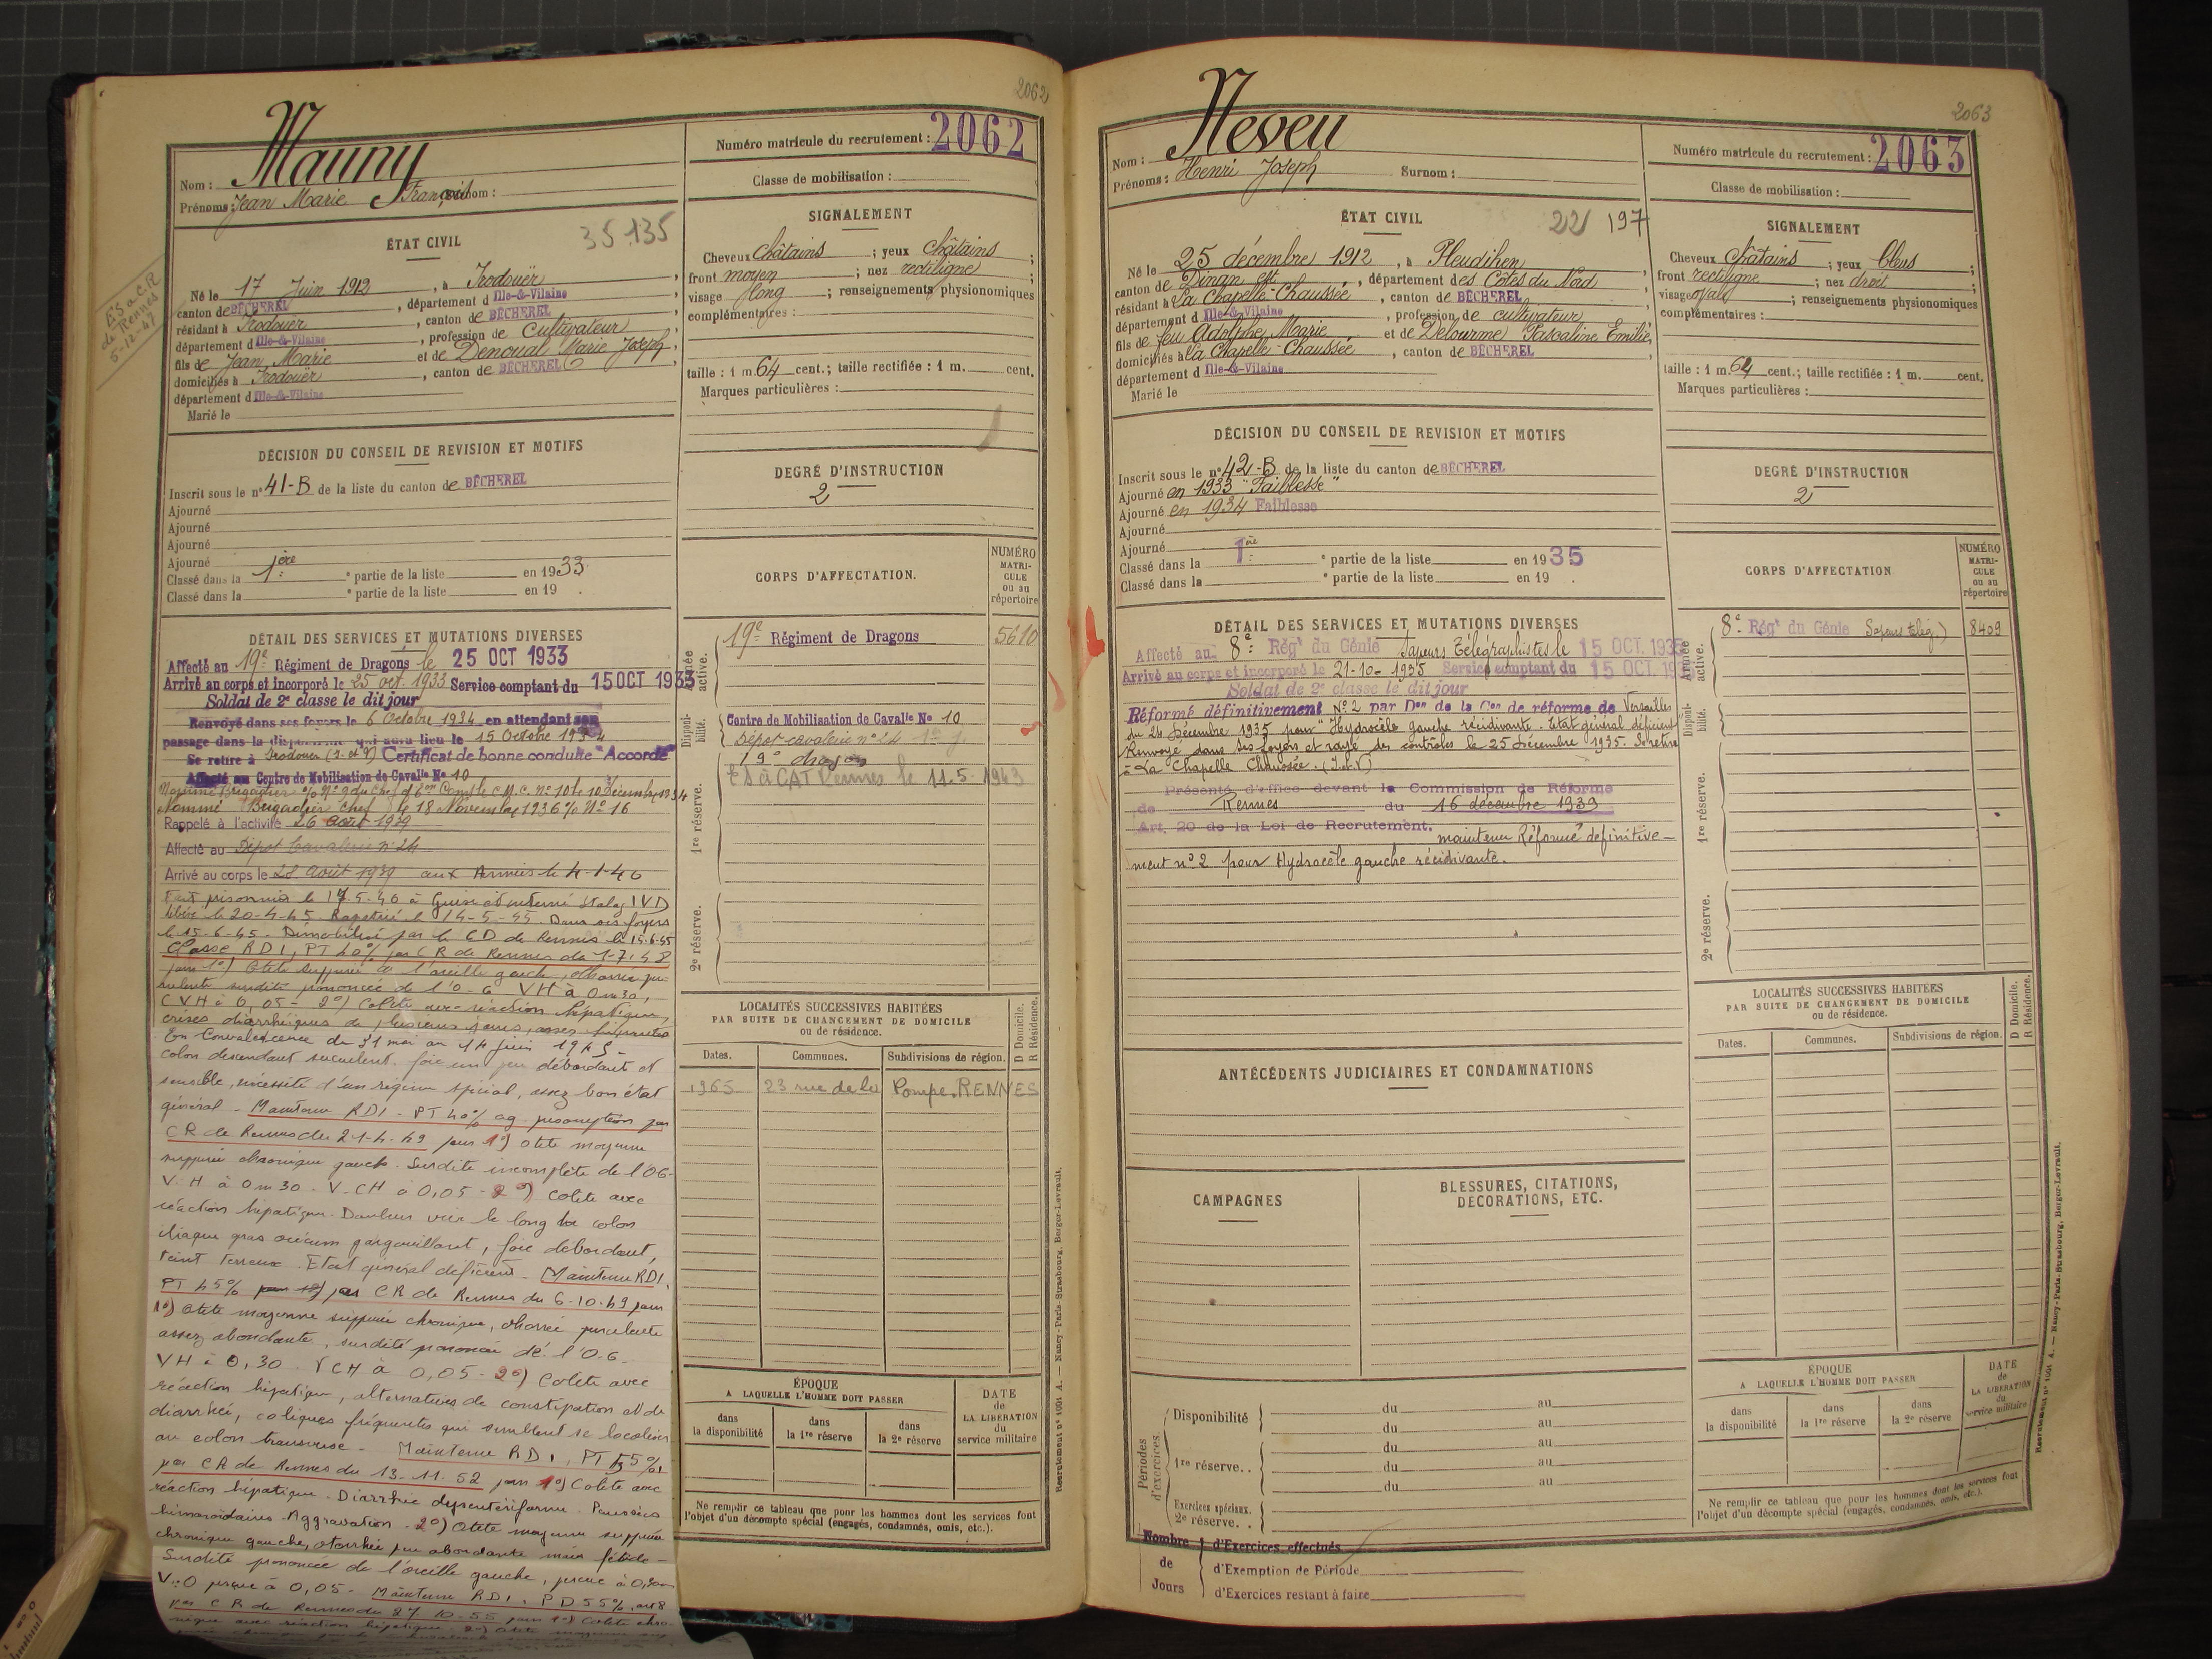 2062
Nom : Mauny
Prénoms : Jean Marie François Surnom :
Numéro matricule du recrutement : 2062
Classe de mobilisation :
35.135
ÉTAT CIVIL
Né le 17 Juin 1912, à Irodouër,
canton de BÉCHEREL, département d Ille-&-Vilaine
résidant à Irodouër, canton de BÉCHEREL
département d Ille-&-Vilaine, profession de Cultivateur
fils de Jean Marie et de Denoual Marie Joseph,
domiciliés à Irodouër, canton de BÉCHEREL
département d Ille-&-Vilaine
Marié le
ES a C.R
de Rennes
5-12-47
SIGNALEMENT
Cheveux châtains ; yeux châtains ;
front moyen ; nez rectiligne ;
visage long ; renseignements physionomiques
complémentaires :
taille : 1 m. 64 cent.; taille rectifiée : 1 m. cent.
Marques particulières :
DÉCISION DU CONSEIL DE REVISION ET MOTIFS
Inscrit sous le n° 41-B de la liste du canton de BÉCHEREL
Ajourné
Ajourné
Ajourné
Ajourné
Classé dans la 1ère ° partie de la liste en 1933
Classé dans la ° partie de la liste en 19 .
DEGRÉ D'INSTRUCTION
2
DÉTAIL DES SERVICES ET MUTATIONS DIVERSES
Affecté au 19e Régiment de Dragons le 25 OCT 1933
Arrivé au corps et incorporé le 25 oct. 1933 Service comptant du 15 OCT 1933
Soldat de 2e classe le dit jour
Renvoyé dans ses foyers le 6 Octobre 1934 en attendant son
passage dans la disponibilité qui aura lieu le 15 Octobre 1934
Se retire à Irodouër (I. et V) Certificat de bonne conduite "Accordé"
Affecté au Centre de Mobilisation de Cavalie No 10
Nommé Brigadier 10 Décembre 1934
Nommé Brigadier Chef le 18 Novembre 1936 % No 16
Rappelé à l'activité 26 août 1939
Affecté au Dépôt Cavalerie n° 24
Arrivé au corps le 28 août 1939 aux Armées le 4-1-40
Fait prisonnier le 17.5.40 à Guise interné Stalag IV D
libéré le 20-4-45 Rapatrié le 14-5-45. Dans ses foyers
le 15-6-45. Démobilisé par le CD de Rennes le 15.6.45
Classé RD1, PT 40% par CR de Rennes du 1-7-48
pour 1°) Otite suppurée de l'oreille gauche, otorrée pu-
rulente surdité prononcée de l'O-G VH à 0m30,
CVH à 0,05 - 2°) Colite avec réaction hépatique,
crises diarrhéiques de plusieurs jours, assez fréquentes
En Convalescence du 31 mai au 14 juin 1945 -
colon descendant succulent. foie un peu débordant et
sensible, nécessité d'un régime spécial, assez bon état
général - Maintenu RD1 - PT 40% ag. présomption par
CR de Rennes du 21-4-49 pour 1°) otite moyenne
suppurée chronique gauche. Surdité incomplète de l'OG-
V.H à 0m30 - V.CH à 0,05 - 2°) Colite avec
réaction hépatique. Douleur vive le long du colon
iliaque gras cæcum gargouillant, foie débordant,
teint terreux. Etat général déficient - Maintenu RD1,
PT 45% par CR de Rennes du 6-10-49 pour
1°) Otite moyenne suppurée chronique, otorrée purulente
assez abondante, surdité prononcée de l'O.G-
VH à 0,30. VCH à 0,05 - 2°) Colite avec
réaction hépatique, alternatives de constipation et de
diarrhée, coliques fréquentes qui semblent se localiser
au colon transverse - Maintenu RD1, PT 55%
par CR de Rennes du 13-11-52 pour 1°) Colite avec
réaction hépatique. Diarrhée dysentériforme. Poussées
hémorroïdaires. Aggravation. 2°) Otite moyenne suppurée
chronique gauche, otorrhée peu abondante mais fétide -
Surdité prononcée de l'oreille gauche, perçue à 0,30m
V.O perçue à 0,05 - Maintenu RD1, PD 55%, art 8
par CR de Rennes du 27-10-55 pour 1°) Colite chro-
nique avec réaction hépatique. 2°) Otite moyenne
CORPS D'AFFECTATION.
NUMÉRO MATRI-CULE ou au répertoire
Armée active.
19e Régiment de Dragons 5610
Disponi-bilité.
Centre de Mobilisation de Cavalie No 10
Dépôt cavalerie n° 24
19e dragon
ES à CAT Rennes le 11.5.1943
1re réserve.
2e réserve.
LOCALITÉS SUCCESSIVES HABITÉES
PAR SUITE DE CHANGEMENT DE DOMICILE
ou de résidence.
D Domicile.
R Résidence.
Dates. Communes. Subdivisions de région.
1965 23 rue de la Pompe. RENNES
ÉPOQUE
A LAQUELLE L'HOMME DOIT PASSER
dans la disponibilité
dans la 1re réserve
dans la 2e réserve
DATE de LA LIBÉRATION du service militaire
Ne remplir ce tableau que pour les hommes dont les services font
l'objet d'un décompte spécial (engagés, condamnés, omis, etc.).
Recrutement n° 1001 A. — Nancy-Paris-Strasbourg, Berger-Levrault.
2063
Nom : Neveu
Prénoms : Henri Joseph Surnom :
Numéro matricule du recrutement : 2063
Classe de mobilisation :
22 197
ÉTAT CIVIL
Né le 25 décembre 1912, à Pleudihen
canton de Dinan est, département des Côtes du Nord
résidant à La Chapelle-Chaussée, canton de BÉCHEREL
département d Ille-&-Vilaine, profession de cultivateur
fils de feu Adolphe Marie et de Delourme Pascaline Emilie,
domiciliés à La Chapelle-Chaussée, canton de BÉCHEREL
département d Ille-&-Vilaine
Marié le
SIGNALEMENT
Cheveux châtains ; yeux bleus ;
front rectiligne ; nez droit ;
visage ovale ; renseignements physionomiques
complémentaires :
taille : 1 m. 64 cent.; taille rectifiée : 1 m. cent.
Marques particulières :
DÉCISION DU CONSEIL DE REVISION ET MOTIFS
Inscrit sous le n° 42-B de la liste du canton de BÉCHEREL
Ajourné en 1933 "Faiblesse"
Ajourné en 1934 Faiblesse
Ajourné
Ajourné
Classé dans la 1ère ° partie de la liste en 1935
Classé dans la ° partie de la liste en 19 .
DEGRÉ D'INSTRUCTION
2
DÉTAIL DES SERVICES ET MUTATIONS DIVERSES
Affecté au 8e Régt du Génie Sapeurs Télégraphistes le 15 OCT. 1935
Arrivé au corps et incorporé le 21-10-1935 Service comptant du 15 OCT. 1935
Soldat de 2e classe le dit jour
Réformé définitivement No 2 par Don de la Con de réforme de Versailles
du 24 Décembre 1935 pour "Hydrocèle gauche récidivante. Etat général déficient"
Renvoyé dans ses foyers et rayé des contrôles le 25 Décembre 1935. Se retire
à La Chapelle Chaussée. (I.et.V)
Présenté d'office devant la Commission de Réforme
de Rennes du 16 décembre 1939
Art. 20 de la Loi de Recrutement. maintenu Réformé définitive-
ment n° 2 pour Hydrocèle gauche récidivante.
CORPS D'AFFECTATION
NUMÉRO MATRI-CULE ou au répertoire
Armée active.
8e Régt du Génie (Sapeurs télég.) 8409
Disponi-bilité.
1re réserve.
2e réserve.
ANTÉCÉDENTS JUDICIAIRES ET CONDAMNATIONS
CAMPAGNES
BLESSURES, CITATIONS,
DÉCORATIONS, ETC.
LOCALITÉS SUCCESSIVES HABITÉES
PAR SUITE DE CHANGEMENT DE DOMICILE
ou de résidence.
D Domicile.
R Résidence.
Dates. Communes. Subdivisions de région.
Périodes d'exercices.
Disponibilité du au
du au
du au
1re réserve.. du au
du au
du au
Exercices spéciaux.
2e réserve..
Nombre de Jours
d'Exercices effectués
d'Exemption de Période
d'Exercices restant à faire
ÉPOQUE
A LAQUELLE L'HOMME DOIT PASSER
dans la disponibilité
dans la 1re réserve
dans la 2e réserve
DATE de LA LIBÉRATION du service militaire
Ne remplir ce tableau que pour les hommes dont les services font
l'objet d'un décompte spécial (engagés, condamnés, omis, etc.).
Recrutement n° 1001 A. — Nancy-Paris-Strasbourg, Berger-Levrault.